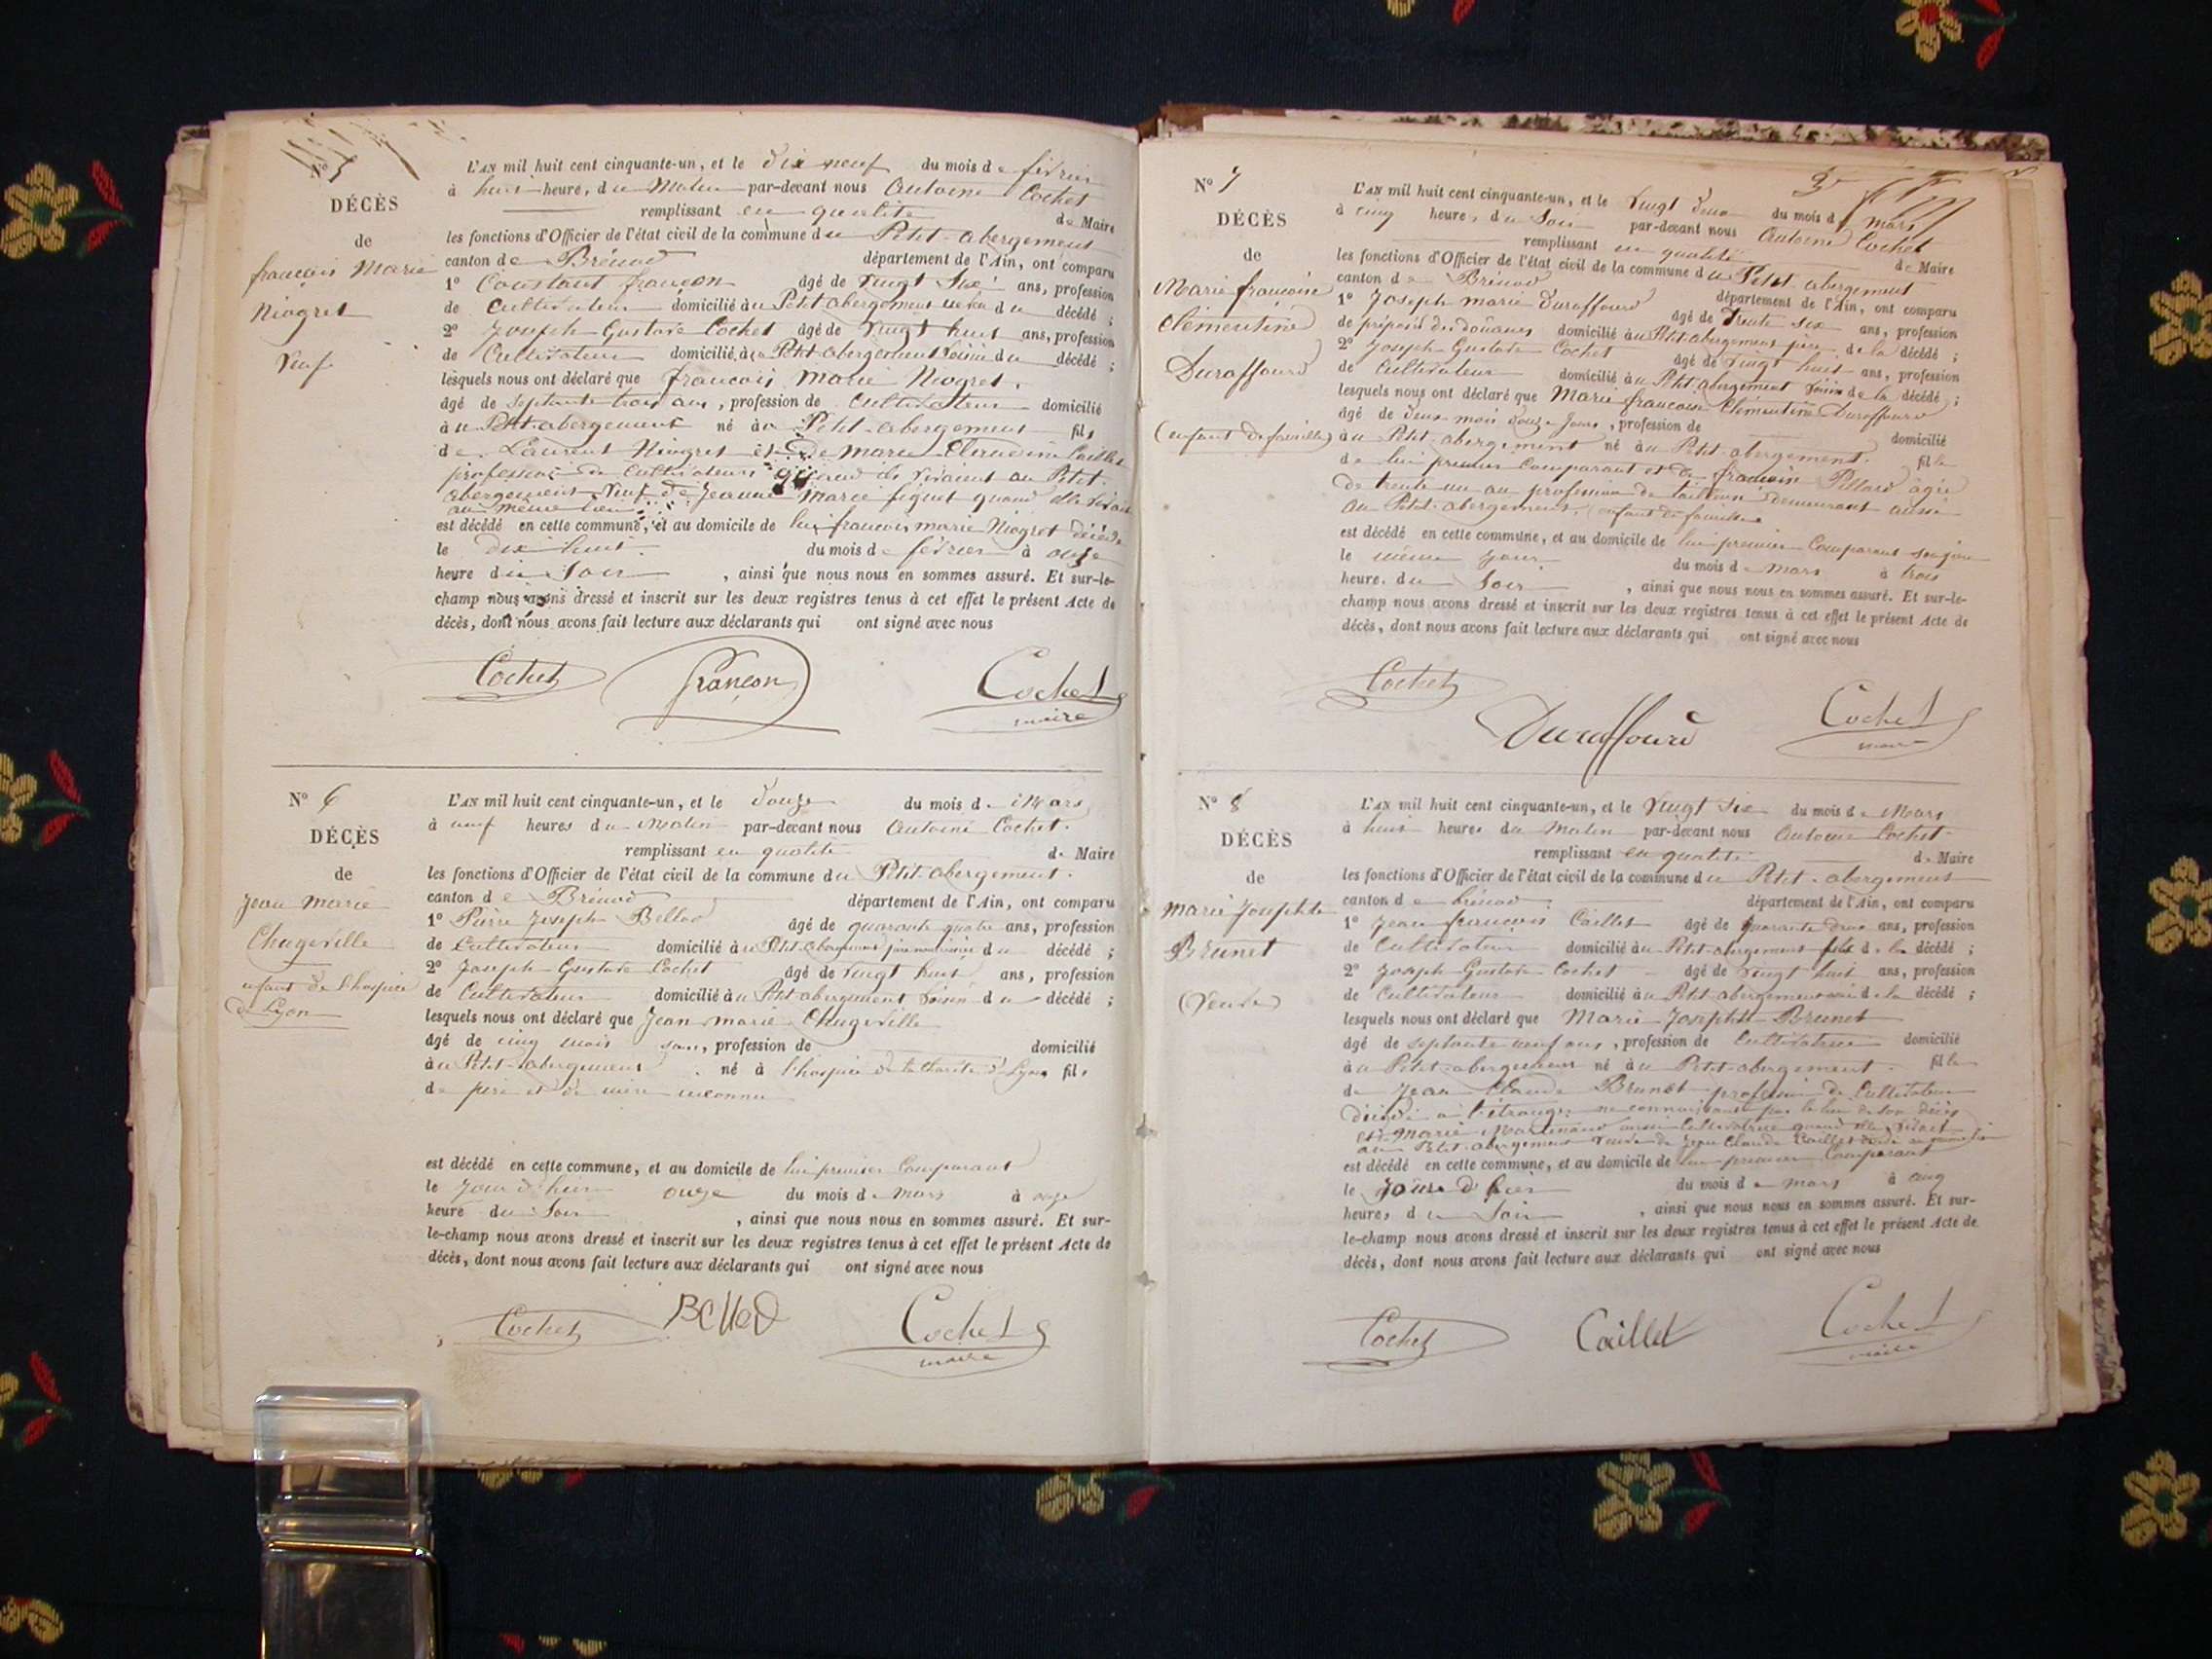 Nº 5
DÉCÈS
de
françois Marie
Niogret
Veuf
L'AN mil huit cent cinquante-un, et le dix neuf du mois de février
à huit heure, du Matin par-devant nous Antoine Cochet
remplissant en qualité de Maire
les fonctions d'Officier de l'état civil de la commune du Petit-abergement
canton de Brénod département de l'Ain, ont comparu
1º Constant françon âgé de vingt Six ans, profession
de Cultivateur domicilié au Petit abergement neveu du décédé ;
2º Joseph Gustave Cochet âgé de vingt huit ans, profession
de Cultivateur domicilié, au Petit abergement voisin du décédé ;
lesquels nous ont déclaré que françois Marie Niogret.
âgé de septante trois ans, profession de Cultivateur domicilié
à u Petit-abergement né à u Petit-abergement fils
de Laurent Niogret et De marie Claudine Caillet
profession de Cultivateurs quand ils vivaient au Petit-
abergement Veuf de Jeanne Marie figuet quand elle vivait
au même lieu
est décédé en cette commune, et au domicile de lui françois marie Niogret décédé
le dix huit du mois de février à onze
heure du Soir , ainsi que nous nous en sommes assuré. Et sur-le-
champ nous avons dressé et inscrit sur les deux registres tenus à cet effet le présent Acte de
décès, dont nous avons fait lecture aux déclarants qui ont signé avec nous
Cochet françon Cochet
maire
Nº 6
DÉCÈS
de
Jean marie
Chugeville
enfant de l'hospice
de Lyon
L'AN mil huit cent cinquante-un, et le douze du mois de Mars
à neuf heures du Matin par-devant nous Antoine Cochet.
remplissant en qualité de Maire
les fonctions d'Officier de l'état civil de la commune du Petit-abergement.
canton de Brénod département de l'Ain, ont comparu
1º Pierre Joseph Bellod âgé de quarante quatre ans, profession
de Cultivateur domicilié à u Petit-abergement père nourricier du décédé ;
2º Joseph Gustave Cochet âgé de vingt huit ans, profession
de Cultivateur domicilié à u Petit abergement voisin du décédé ;
lesquels nous ont déclaré que Jean marie Chugeville
âgé de cinq mois ans, profession de domicilié
à u Petit-abergement né à l'hospice de la Charité de Lyon fils
de père et de mère inconnu
est décédé en cette commune, et au domicile de lui premier Comparant
le jour d'hier onze du mois de mars à onze
heure du Soir , ainsi que nous nous en sommes assuré. Et sur-
le-champ nous avons dressé et inscrit sur les deux registres tenus à cet effet le présent Acte de
décès, dont nous avons fait lecture aux déclarants qui ont signé avec nous
Cochet BELLOD Cochet
maire
Nº 7
DÉCÈS
de
Marie françoise
Clémentine
Duraffourd
(enfant de famille)
L'AN mil huit cent cinquante-un, et le vingt deux du mois de mars
à cinq heures du Soir par-devant nous Antoine Cochet
remplissant en qualité de Maire
les fonctions d'Officier de l'état civil de la commune du Petit abergement
canton de Brénod département de l'Ain, ont comparu
1º Joseph marie Duraffourd âgé de Trente six ans, profession
de préposé des douanes domicilié au Petit abergement père de la décédé ;
2º Joseph Gustave Cochet âgé de vingt huit ans, profession
de Cultivateur domicilié à u Petit abergement voisin de la décédé ;
lesquels nous ont déclaré que Marie françoise Clémentine Duraffourd
âgé de deux mois douze jours, profession de domicilié
à u Petit-abergement né à u Petit-abergement. fille
de lui premier comparant et de françoise Pillard âgée
de trente un an profession de tailleuse demeurant aussi
au Petit-abergement, enfant de famille
est décédé en cette commune, et au domicile de lui premier Comparant son père
le même jour du mois de mars à trois
heure. du Soir , ainsi que nous nous en sommes assuré. Et sur-le-
champ nous avons dressé et inscrit sur les deux registres tenus à cet effet le présent Acte de
décès, dont nous avons fait lecture aux déclarants qui ont signé avec nous
Cochet Duraffourd Cochet
maire
Nº 8
DÉCÈS
de
Marie Josephte
Brunet
(Veuve)
L'AN mil huit cent cinquante-un, et le vingt six du mois de Mars
à huit heures du Matin par-devant nous Antoine Cochet
remplissant en qualité de Maire
les fonctions d'Officier de l'état civil de la commune du Petit-abergement
canton de brénod département de l'Ain, ont comparu
1º Jean françois Caillet âgé de quarante deux ans, profession
de Cultivateur domicilié au Petit-abergement fils de la décédé ;
2º Joseph Gustave Cochet âgé de vingt huit ans, profession
de Cultivateur domicilié à u Petit-abergement voisin de la décédé ;
lesquels nous ont déclaré que Marie Josephte Brunet
âgé de septante neuf ans, profession de Cultivatrice domicilié
à u Petit-abergement né à u Petit-abergement. fille
de Jean Claude Brunet profession de Cultivateur
décédé à l'étranger ne connaissant pas le lieu de son décès
et de Marie Martinand aussi Cultivatrice quand elle vivait
au Petit-abergement veuve de Jean Claude Caillet
est décédé en cette commune, et au domicile de lui premier Comparant
le jour d'hier du mois de mars à cinq
heures du Soir , ainsi que nous nous en sommes assuré. Et sur-
le-champ nous avons dressé et inscrit sur les deux registres tenus à cet effet le présent Acte de
décès, dont nous avons fait lecture aux déclarants qui ont signé avec nous
Cochet Caillet Cochet
maire